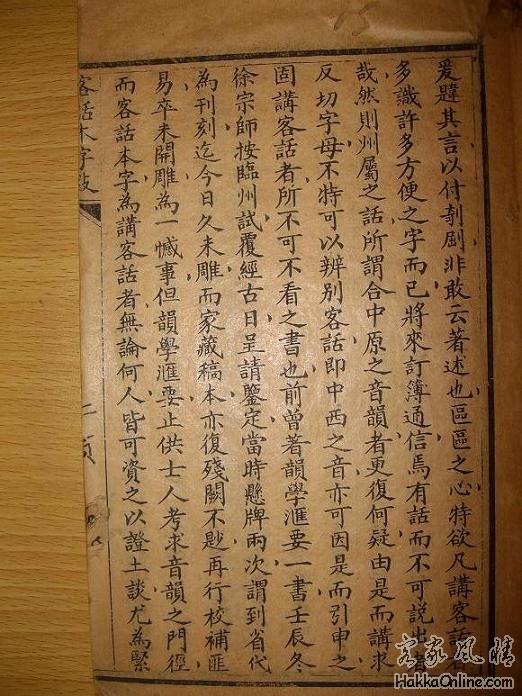 爰韙其言以付剞劂非敢云著述也區區之心特欲凡講客話
多識許多方便之字而已將來訂簿通信焉有話而不可説出
哉然則州屬之話所謂合中原之音韻者更復何疑由是而講求
反切字母不特可以辨别客話即中西之音亦可因是而引申之
固講客話者所不可不看之書也前曾著韻學滙要一書壬辰冬
徐宗師按臨州試覆經古日呈請鑒定當時懸牌兩次謂到省代
為刊刻迄今日久未雕而家藏稿本亦復殘闕不尠再行校補匪
易卒未開雕為一憾事但韻學滙要止供士人考求音韻之門徑
而客話本字為講客話者無論何人皆可資之以證土談尤為緊
客話本字
客家風情
HakkaOnline.com